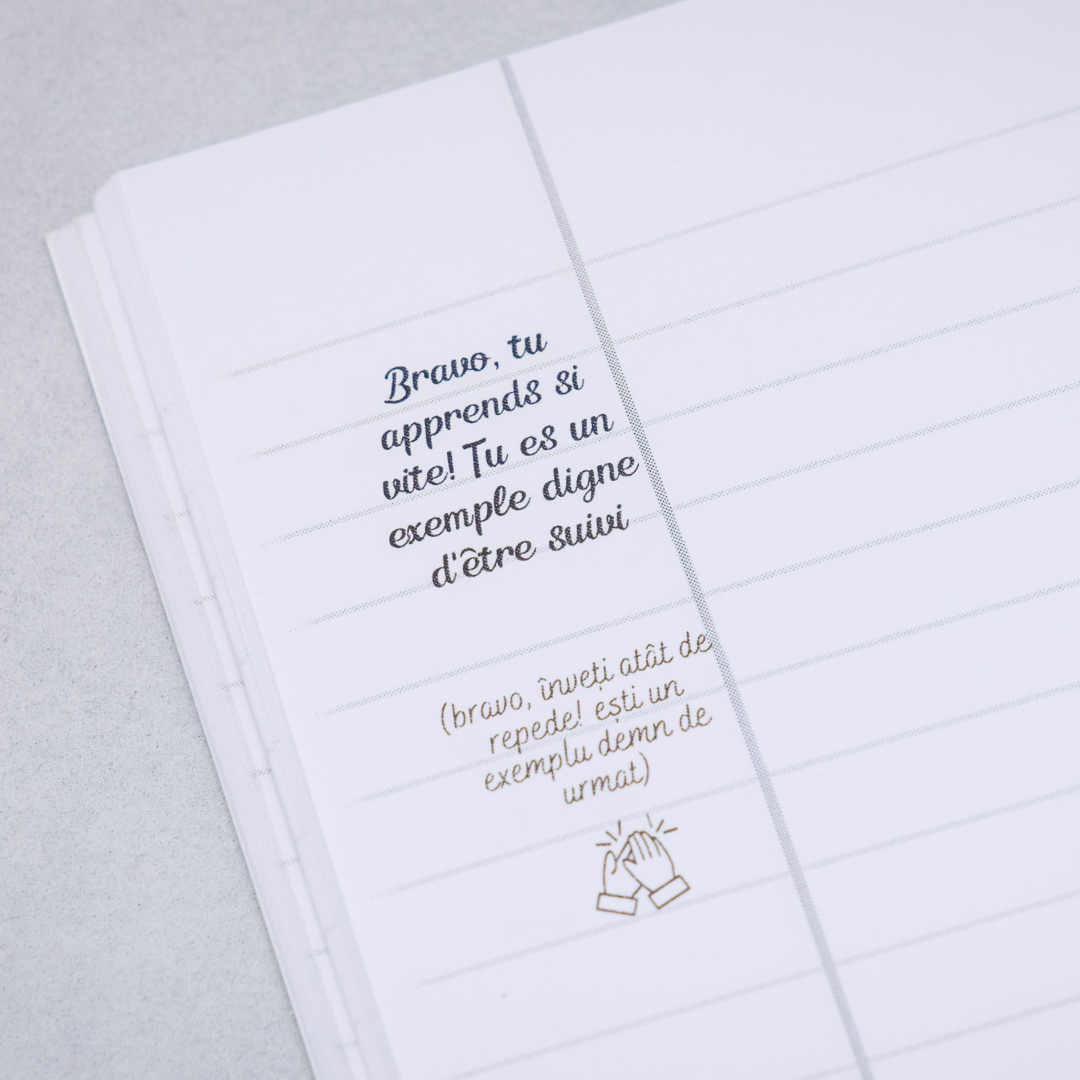 Bravo, tu
apprends si
vite! Tu es un
exemple digne
d'être suivi
(bravo, înveți atât de
repede! ești un
exemplu demn de
urmat)